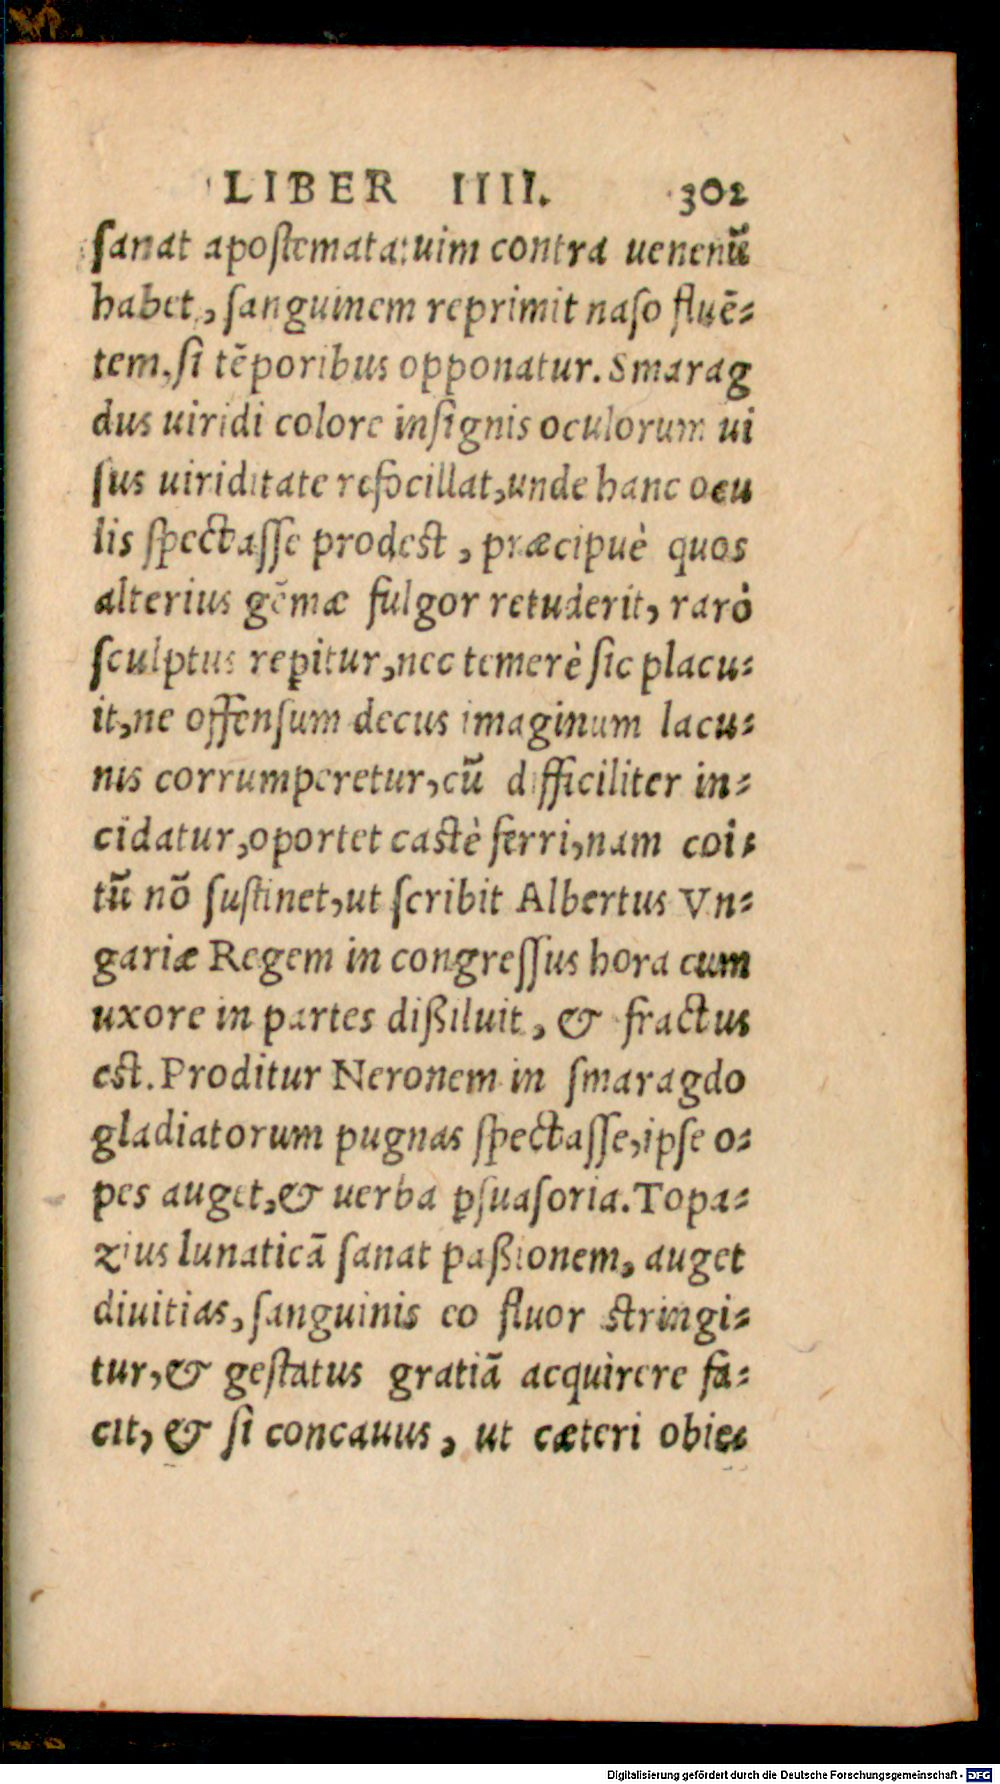 LIBER IIII. 302
sanat apostemata:uim contra uenenũ
habet, sanguinem reprimit naso fluē-
tem,si tēporibus opponatur. Smarag
dus uiridi colore insignis oculorum ui
sus uiriditate refocillat,unde hanc ocu
lis spectasse prodest, præcipuè quos
alterius gēmæ fulgor retuderit, rarò
sculptus rep̱itur,nec temerè sic placu-
it,ne offensum decus imaginum lacu-
nis corrumperetur,cũ difficiliter in-
cidatur,oportet castè ferri,nam coi-
tũ nō sustinet,ut scribit Albertus Vn-
gariæ Regem in congressus hora cum
uxore in partes dißiluit, & fractus
est. Proditur Neronem in smaragdo
gladiatorum pugnas spectasse,ipse o-
pes auget,& uerba p̱suasoria. Topa-
zius lunaticā sanat paßionem, auget
diuitias, sanguinis eo fluor stringi-
tur,& gestatus gratiā acquirere fa-
cit, & si concauus, ut cæteri obie-
Digitalisierung gefördert durch die Deutsche Forschungsgemeinschaft - DFG